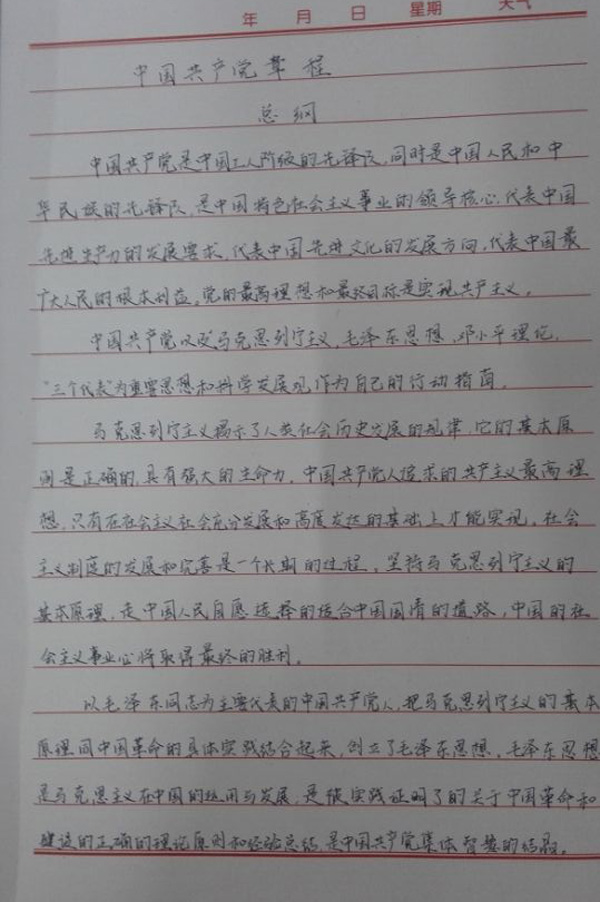 年 月 日 星期 天气
中国共产党章程
总纲
中国共产党是中国工人阶级的先锋队,同时是中国人民和中
华民族的先锋队,是中国特色社会主义事业的领导核心,代表中国
先进生产力的发展要求,代表中国先进文化的发展方向,代表中国最
广大人民的根本利益。党的最高理想和最终目标是实现共产主义。
中国共产党以马克思列宁主义,毛泽东思想,邓小平理论,
"三个代表"为重要思想和科学发展观作为自己的行动指南。
马克思列宁主义揭示了人类社会历史发展的规律,它的基本原
则是正确的,具有强大的生命力。中国共产党人追求的共产主义最高理
想,只有在社会主义社会充分发展和高度发达的基础上才能实现,社会
主义制度的发展和完善是一个长期的过程,坚持马克思列宁主义的
基本原理,走中国人民自愿选择的适合中国国情的道路,中国的社
会主义事业必将取得最终的胜利。
以毛泽东同志为主要代表的中国共产党人,把马克思列宁主义的基本
原理同中国革命的具体实践结合起来,创立了毛泽东思想,毛泽东思想
是马克思主义在中国的运用与发展,是被实践证明了的关于中国革命和
建设的正确的理论原则和经验总结,是中国共产党集体智慧的结晶。